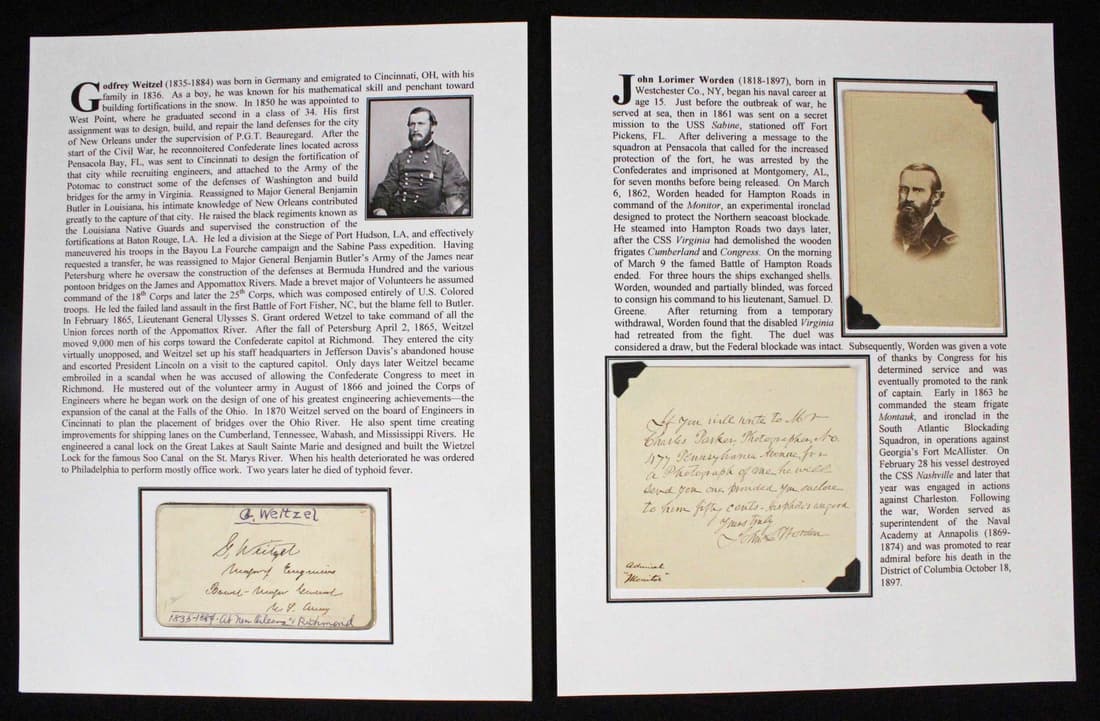 Godfrey Weitzel (1835-1884) was born in Germany and emigrated to Cincinnati, OH, with his
family in 1836. As a boy, he was known for his mathematical skill and penchant toward
building fortifications in the snow. In 1850 he was appointed to
West Point, where he graduated second in a class of 34. His first
assignment was to design, build, and repair the land defenses for the city
of New Orleans under the supervision of P.G.T. Beauregard. After the
start of the Civil War, he reconnoitered Confederate lines located across
Pensacola Bay, FL, was sent to Cincinnati to design the fortification of
that city while recruiting engineers, and attached to the Army of the
Potomac to construct some of the defenses of Washington and build
bridges for the army in Virginia. Reassigned to Major General Benjamin
Butler in Louisiana, his intimate knowledge of New Orleans contributed
greatly to the capture of that city. He raised the black regiments known as
the Louisiana Native Guards and supervised the construction of the
fortifications at Baton Rouge, LA. He led a division at the Siege of Port Hudson, LA, and effectively
maneuvered his troops in the Bayou La Fourche campaign and the Sabine Pass expedition. Having
requested a transfer, he was reassigned to Major General Benjamin Butler's Army of the James near
Petersburg where he oversaw the construction of the defenses at Bermuda Hundred and the various
pontoon bridges on the James and Appomattox Rivers. Made a brevet major of Volunteers he assumed
command of the 18th Corps and later the 25th Corps, which was composed entirely of U.S. Colored
troops. He led the failed land assault in the first Battle of Fort Fisher, NC, but the blame fell to Butler.
In February 1865, Lieutenant General Ulysses S. Grant ordered Wetzel to take command of all the
Union forces north of the Appomattox River. After the fall of Petersburg April 2, 1865, Weitzel
moved 9,000 men of his corps toward the Confederate capitol at Richmond. They entered the city
virtually unopposed, and Weitzel set up his staff headquarters in Jefferson Davis's abandoned house
and escorted President Lincoln on a visit to the captured capitol. Only days later Weitzel became
embroiled in a scandal when he was accused of allowing the Confederate Congress to meet in
Richmond. He mustered out of the volunteer army in August of 1866 and joined the Corps of
Engineers where he began work on the design of one of his greatest engineering achievements—the
expansion of the canal at the Falls of the Ohio. In 1870 Weitzel served on the board of Engineers in
Cincinnati to plan the placement of bridges over the Ohio River. He also spent time creating
improvements for shipping lanes on the Cumberland, Tennessee, Wabash, and Mississippi Rivers. He
engineered a canal lock on the Great Lakes at Sault Sainte Marie and designed and built the Wietzel
Lock for the famous Soo Canal on the St. Marys River. When his health deteriorated he was ordered
to Philadelphia to perform mostly office work. Two years later he died of typhoid fever.
G. Weitzel
G. Weitzel
Major of Engineers
Brevet-Major General
U.S. Army
1835-1884-At New Orleans & Richmond
John Lorimer Worden (1818-1897), born in
Westchester Co., NY, began his naval career at
age 15. Just before the outbreak of war, he
served at sea, then in 1861 was sent on a secret
mission to the USS Sabine, stationed off Fort
Pickens, FL. After delivering a message to the
squadron at Pensacola that called for the increased
protection of the fort, he was arrested by the
Confederates and imprisoned at Montgomery, AL,
for seven months before being released. On March
6, 1862, Worden headed for Hampton Roads in
command of the Monitor, an experimental ironclad
designed to protect the Northern seacoast blockade.
He steamed into Hampton Roads two days later,
after the CSS Virginia had demolished the wooden
frigates Cumberland and Congress. On the morning
of March 9 the famed Battle of Hampton Roads
ended. For three hours the ships exchanged shells.
Worden, wounded and partially blinded, was forced
to consign his command to his lieutenant, Samuel. D.
Greene. After returning from a temporary
withdrawal, Worden found that the disabled Virginia
had retreated from the fight. The duel was
considered a draw, but the Federal blockade was intact. Subsequently, Worden was given a vote
of thanks by Congress for his
determined service and was
eventually promoted to the rank
of captain. Early in 1863 he
commanded the steam frigate
Montauk, and ironclad in the
South Atlantic Blockading
Squadron, in operations against
Georgia's Fort McAllister. On
February 28 his vessel destroyed
the CSS Nashville and later that
year was engaged in actions
against Charleston. Following
the war, Worden served as
superintendent of the Naval
Academy at Annapolis (1869-
1874) and was promoted to rear
admiral before his death in the
District of Columbia October 18,
1897.
If you will write to Mr
Charles Parker, Photographer, No.
477 Pennsylvania Avenue, for
a Photograph of me, he will
send you one, provided you enclose
to him fifty cents.
Yours truly
John L. Worden
Admiral
"Monitor"